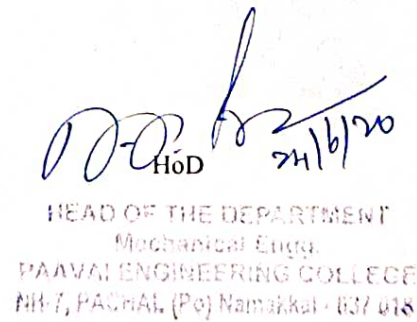 HoD
24/6/20
HEAD OF THE DEPARTMENT
Mechanical Engg.
PAAVAI ENGINEERING COLLEGE
NH-7, PACHAL (Po) Namakkal - 637 018